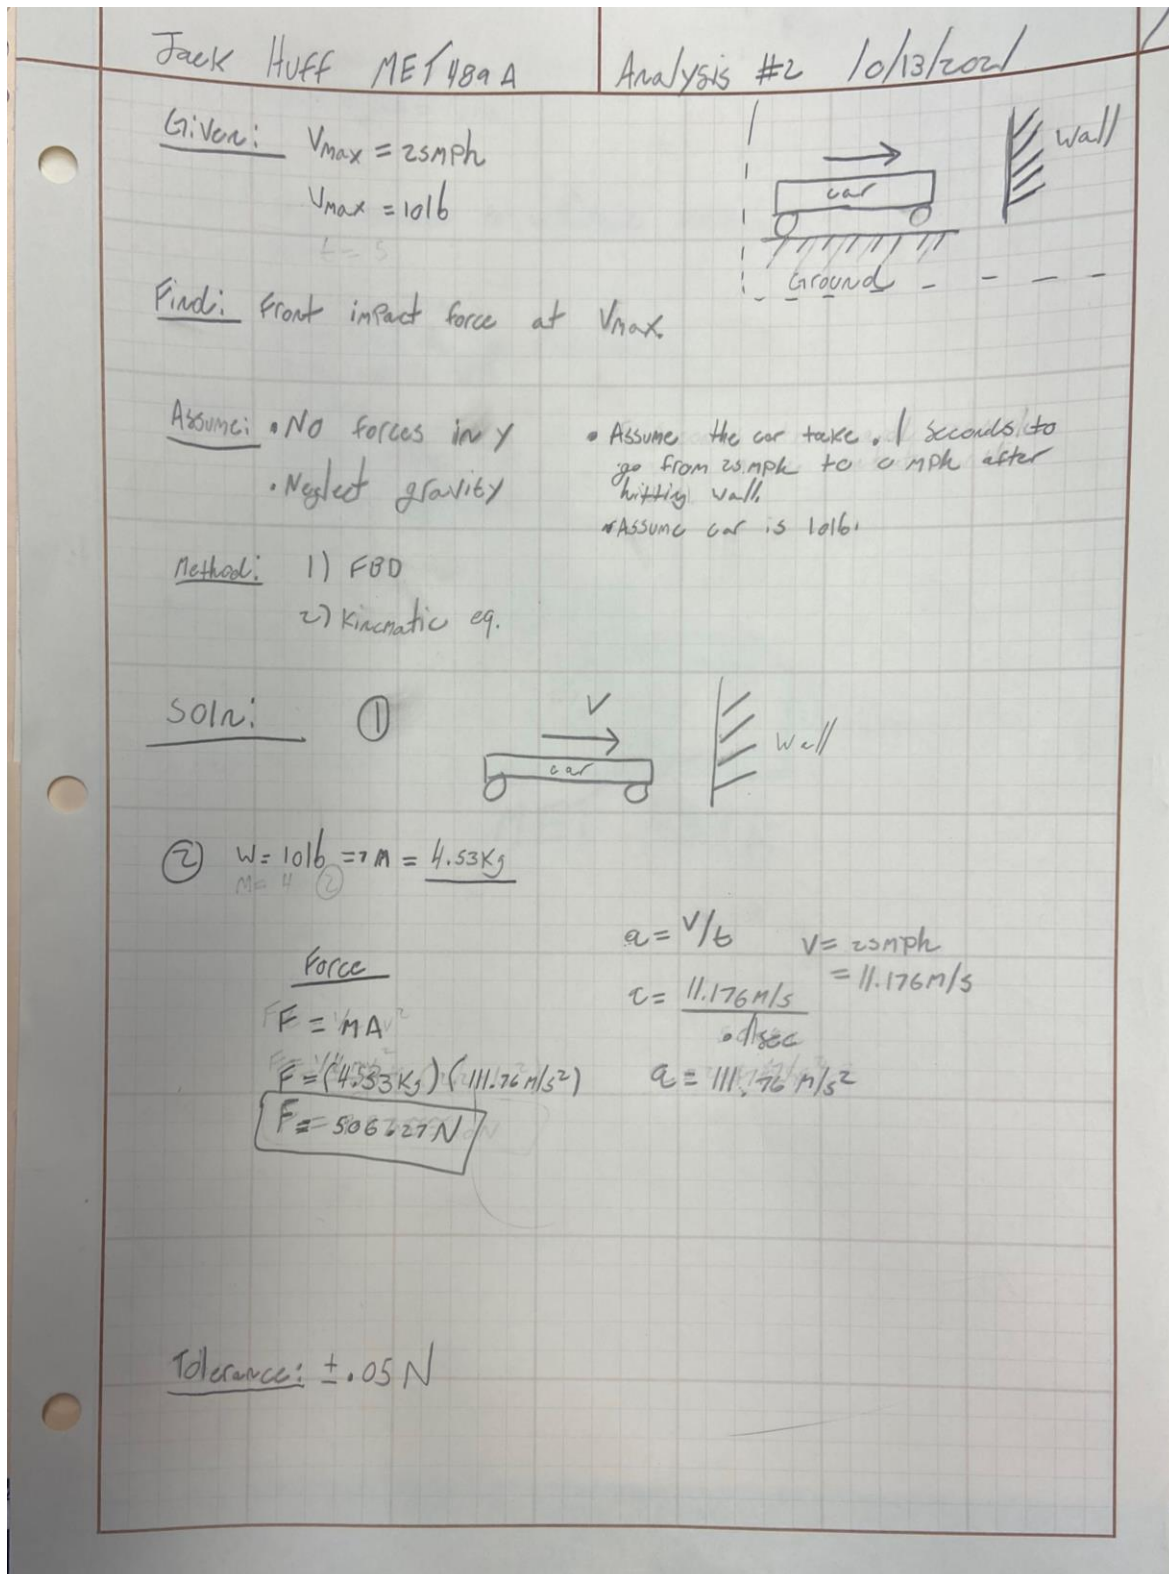 Jack Huff MET 489A
Analysis #2 10/13/2021
Given: Vmax = 25mph
Vmax = 10lb
Wall
car
Ground
Find: Front impact force at Vmax.
Assume: • No forces in y
• Neglect gravity
• Assume the car take .1 seconds to
go from 25 mph to 0 mph after
hitting wall.
• Assume car is 10lb.
Method: 1) FBD
2) Kinematic eq.
Soln: ①
V
car
Wall
② W = 10lb => M = 4.53Kg
a = V/t
V = 25mph
= 11.176 m/s
Force
F = MA
= 11.176 m/s
.1sec
F = (4.53 Kg) (111.76 m/s²)
a = 111.76 m/s²
F = 506.27N
Tolerance: ±.05 N